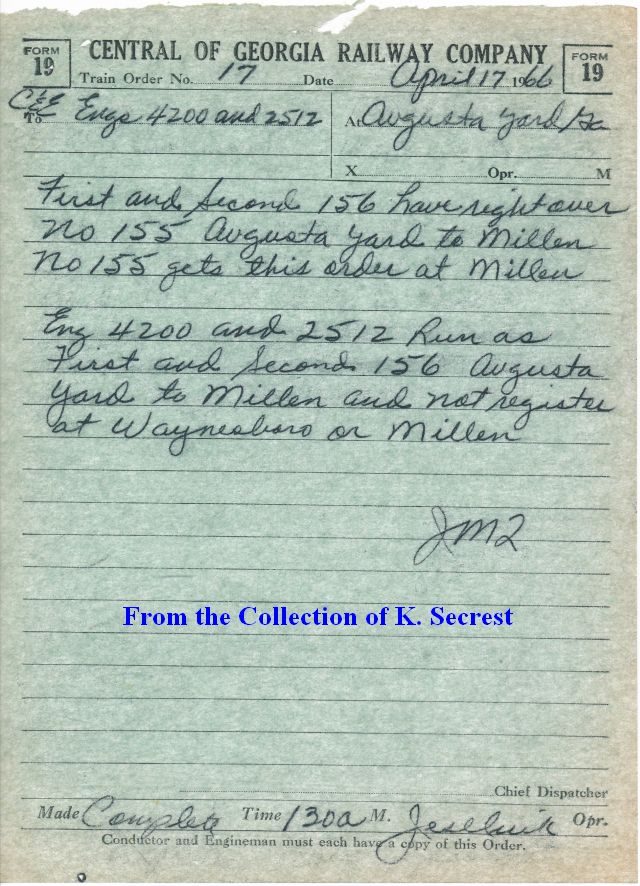 FORM 19
CENTRAL OF GEORGIA RAILWAY COMPANY
FORM 19
Train Order No. 17 Date April 17 1966
C&E
To Engs 4200 and 2512
At Augusta Yard Ga
X Opr. M
First and Second 156 have right over
No 155 Augusta Yard to Millen
No 155 gets this order at Millen
Eng 4200 and 2512 Run as
First and Second 156 Augusta
Yard to Millen and not register
at Waynesboro or Millen
From the Collection of K. Secrest
Chief Dispatcher
Made Complete Time 130a M. Opr.
Conductor and Engineman must each have a copy of this Order.